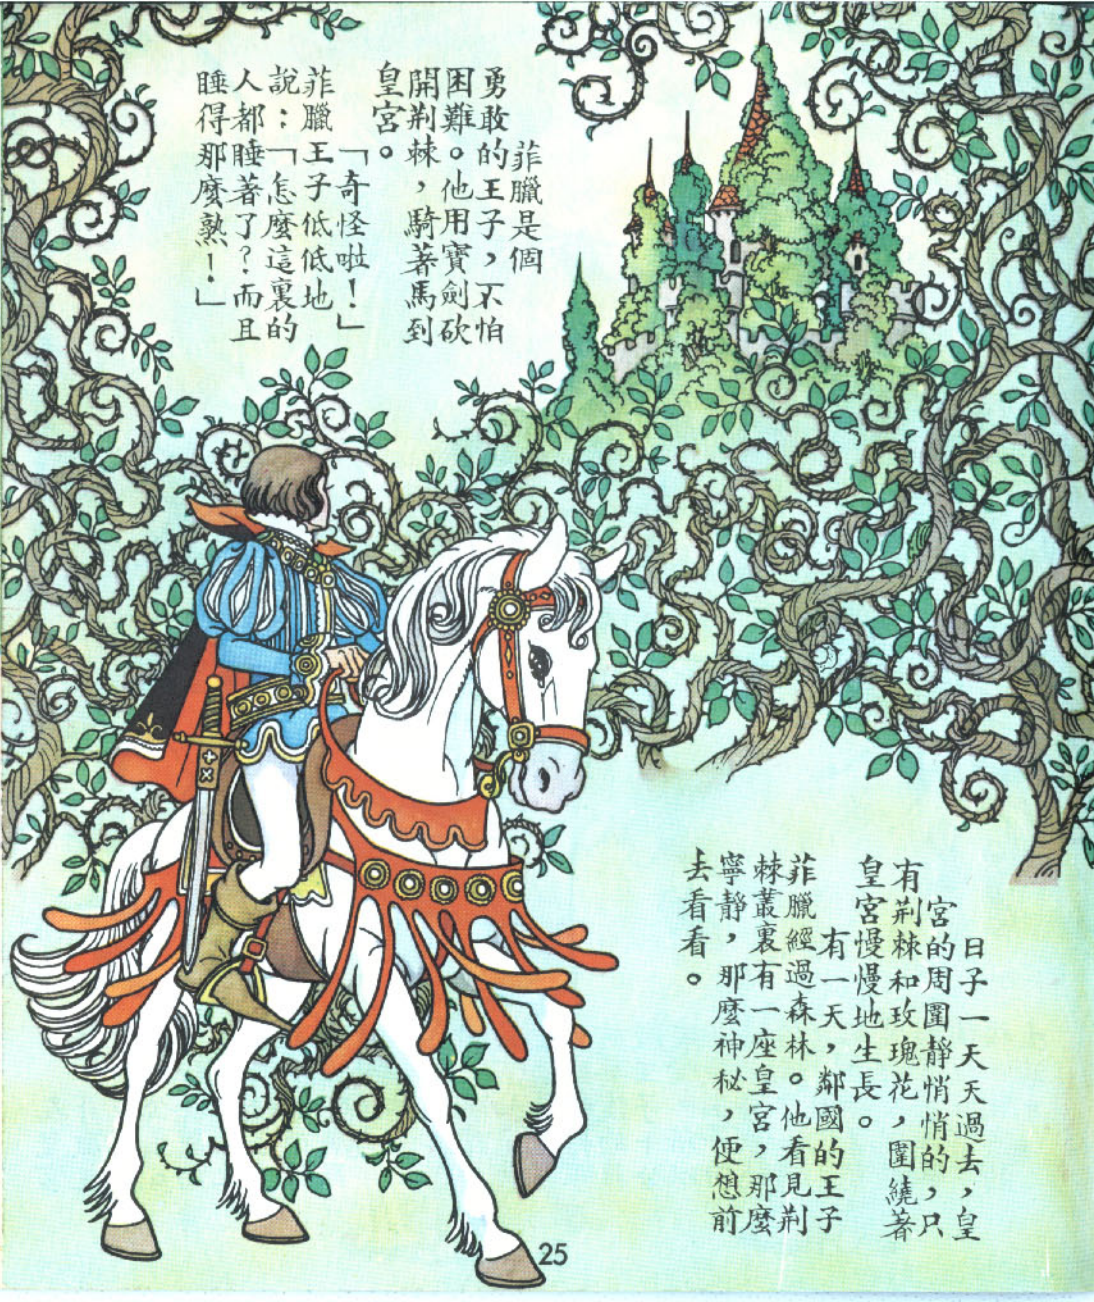 日子一天天過去，皇
宮的周圍靜悄悄的，只
有荆棘和玫瑰花，圍繞著
皇宮慢慢地生長。
有一天，鄰國的王子
菲臘經過森林。他看見荆
棘叢裏有一座皇宮，那麼
寧靜，那麼神秘，便想前
去看看。
菲臘是個
勇敢的王子，不怕
困難。他用寶劍砍
開荆棘，騎著馬到
皇宮。
「奇怪啦！」
菲臘王子低低地
說：「怎麼這裏的
人都睡著了？而且
睡得那麼熟！」
25